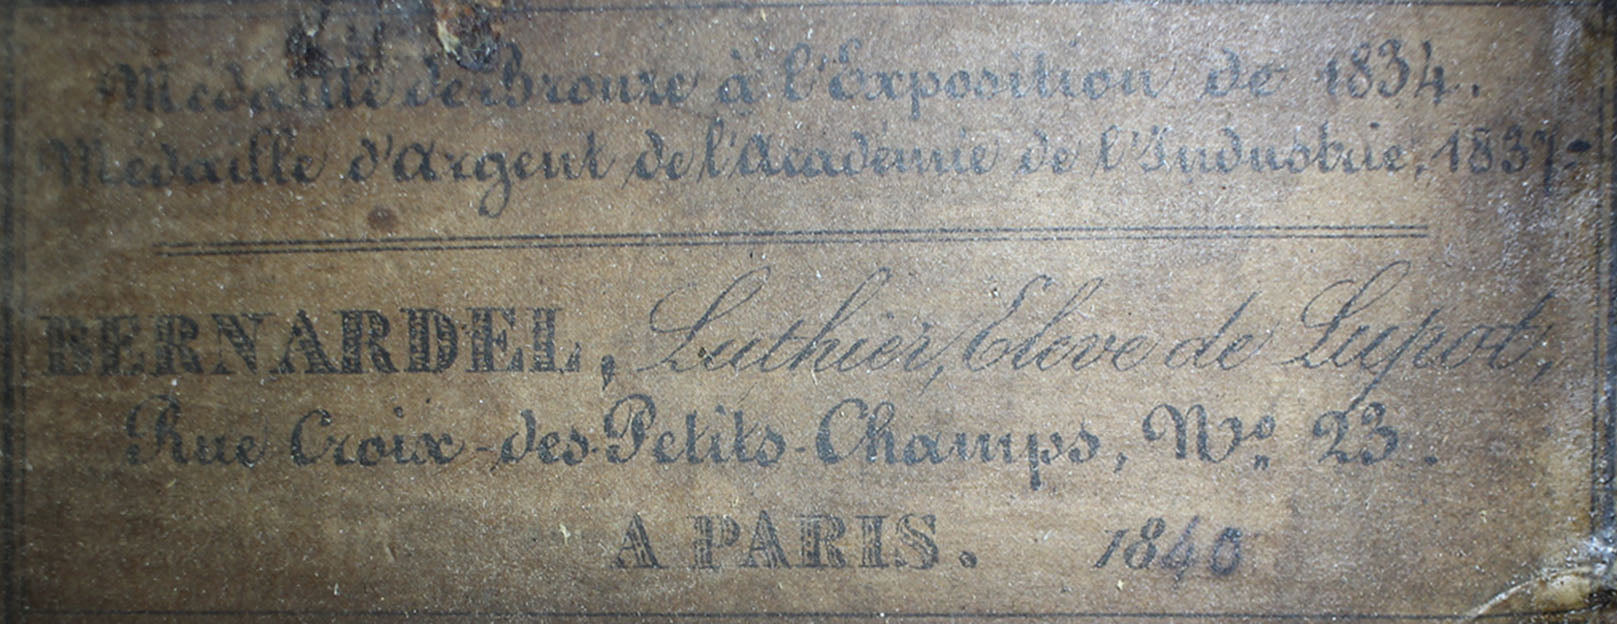 Médaille de Bronze à l'Exposition de 1834.
Médaille d'Argent de l'Académie de l'Industrie, 1837-
BERNARDEL, Luthier, Eleve de Lupot,
Rue Croix-des-Petits-Champs, N.º 23.
A PARIS. 1840